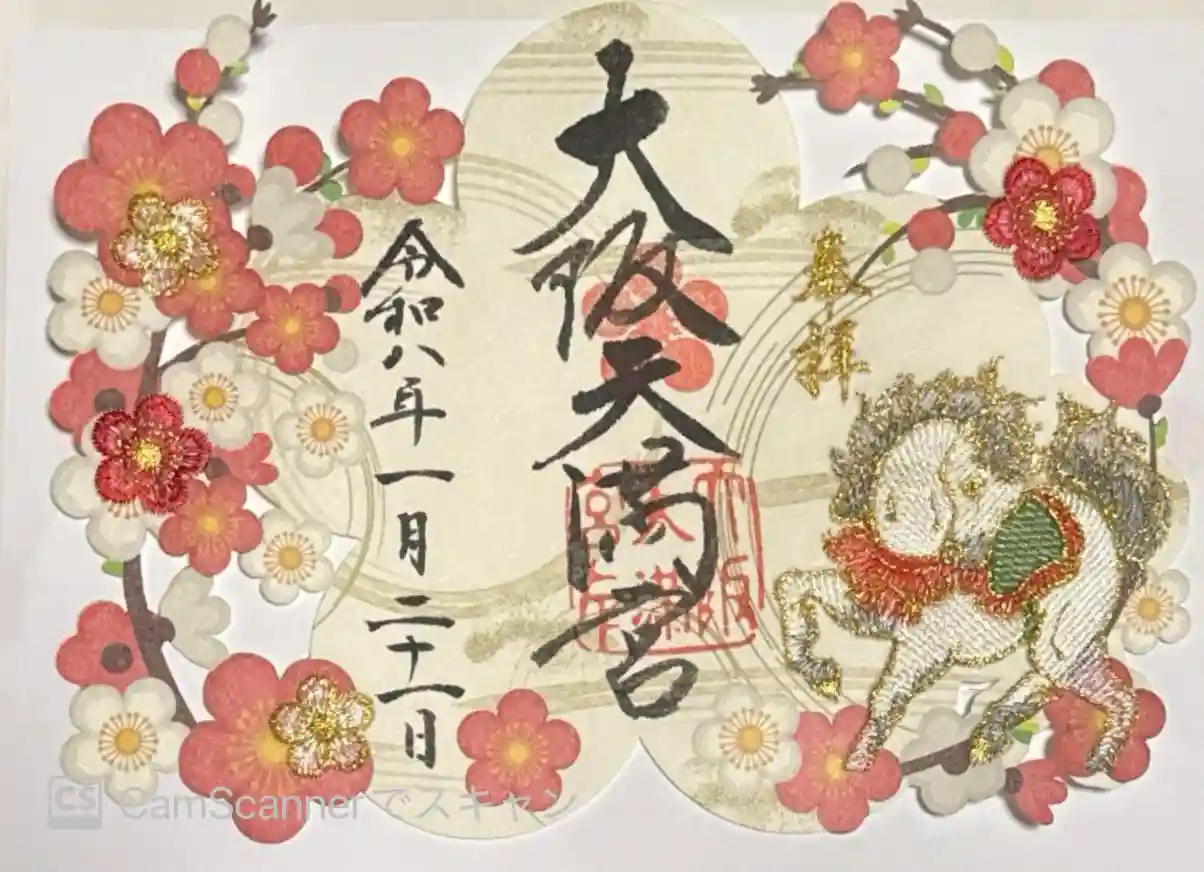 奉拝
大阪天満宮
令和八年一月二十一日
CS CamScannerでスキャン